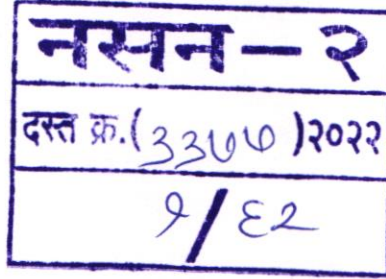 नसन-२
दस्त क्र.(३३७७)२०२२
१/६२